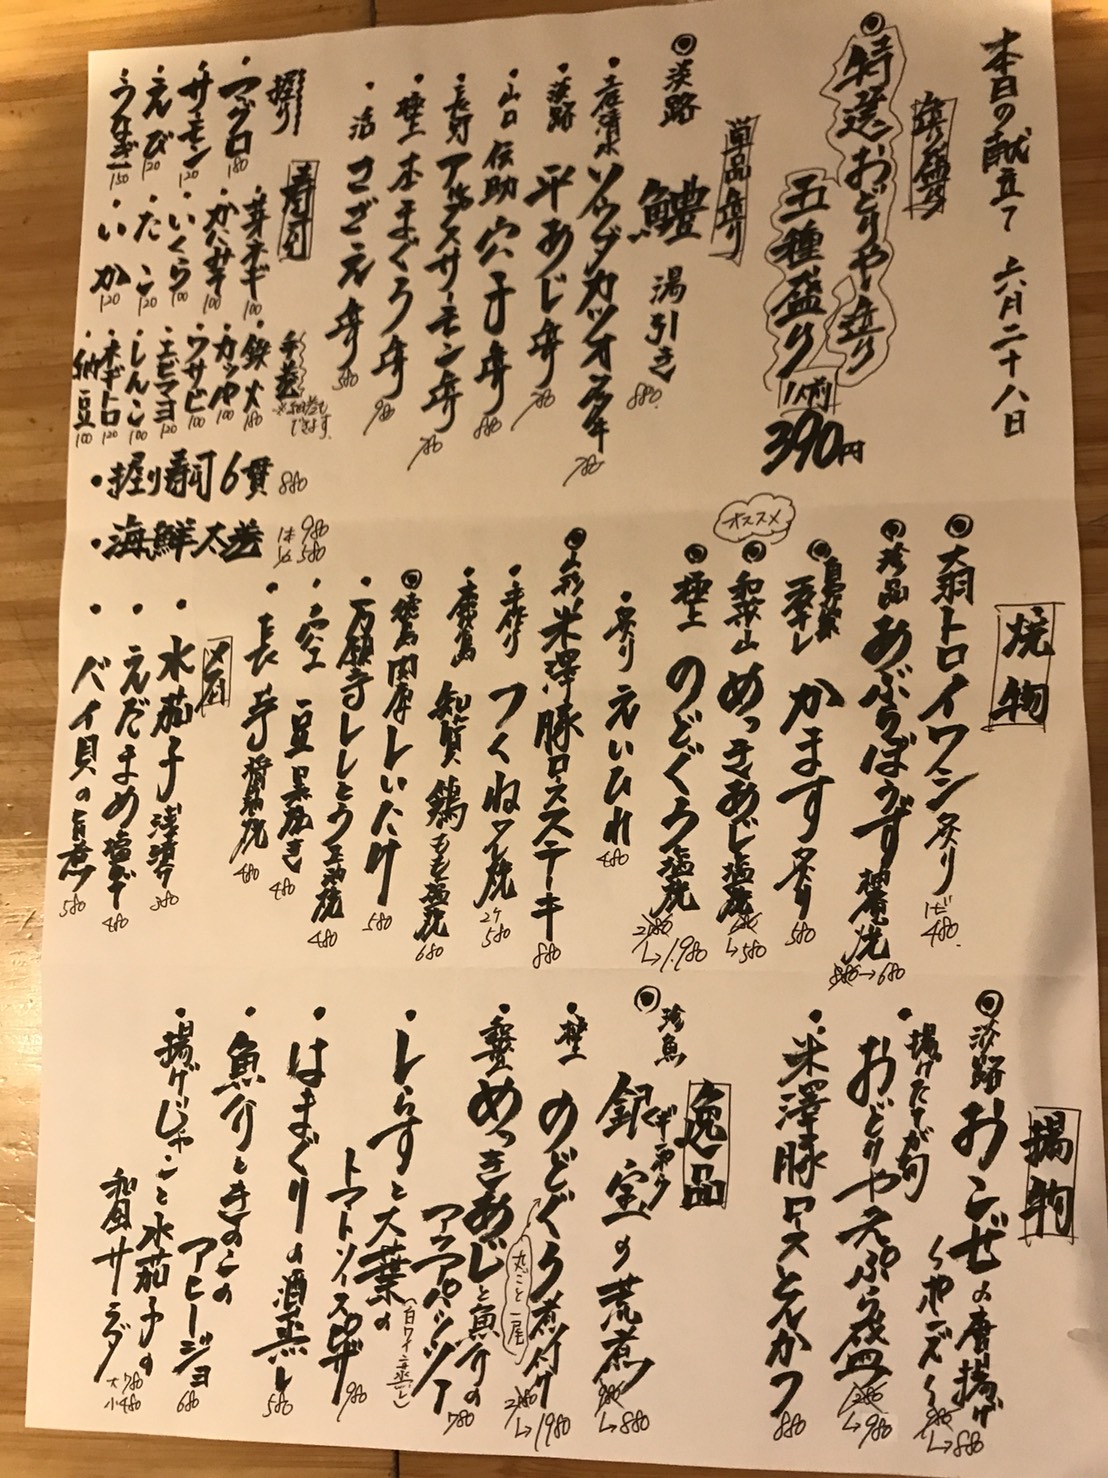 本日の献立て 六月二十八日
造り盛り
◎特選おどりや造り
五種盛り
1人前
390円
単品造り
◎淡路 鱧 湯引き 880
・ソウダカツオ 780
・淡路 平あじ造 780
・山口 伝助穴子造 880
・アトランティックサーモン造 780
・極上 本まぐろ造 980
・活 さざえ造 580
寿司
握り
・マグロ 180
・サーモン 120
・えび 120
・うなぎ 150
・芽ネギ 100
・いくら 100
・たこ 120
・いか 120
手巻
※細巻も
できます。
・鉄火 180
・カッパ 100
・ワサビ 100
・エビマヨ 120
・しんこ 100
・ネギトロ 120
・納豆 100
・握り寿司6貫 880
・海鮮太巻 1本 980
½ 580
焼物
◎大羽トロイワシ炙り 1ピ 480
◎珍品 あぶらぼうず 柚庵焼 880→680
一夜干し かます炙り 580
オススメ
◎和歌山 めっきあじ塩焼 680
↳580
◎極上 のどぐろ塩焼 2180
↳1.980
・炙りえいひれ 480
◎山形 米澤豚ロースステーキ 880
・手作り つくね串焼 2ケ 580
・鹿児島 知覧鶏もも塩焼 680
◎徳島 肉厚しいたけ 580
・万願寺ししとう玉油焼 480
・空豆黒焼き 480
・長芋醤油焼 480
〆石
・水茄子 浅漬け 380
・えだまめ塩ゆで 480
・バイ貝の旨煮 580
揚物
◎淡路 おこぜの唐揚げ
〜ポンズ〜 980
↳880
・揚げたてが旬
おどりや天ぷら盛 1280
↳980
・米澤豚ロースとんかつ 880
逸品
◎珍魚
銀宝の荒煮 980
ギンポウ
↳880
・極上 のどぐろ煮付け 2180
↳1980
丸ごと一尾
・和歌山 めっきあじと魚介の
アクアパッツァ 780
(白ワイン蒸し)
・しらすと大葉の
トマトソースピザ 980
・はまぐりの酒蒸し 580
・魚介ときのこの
アヒージョ 680
・揚げじゃこと水茄子の
和風サラダ 大780
小480